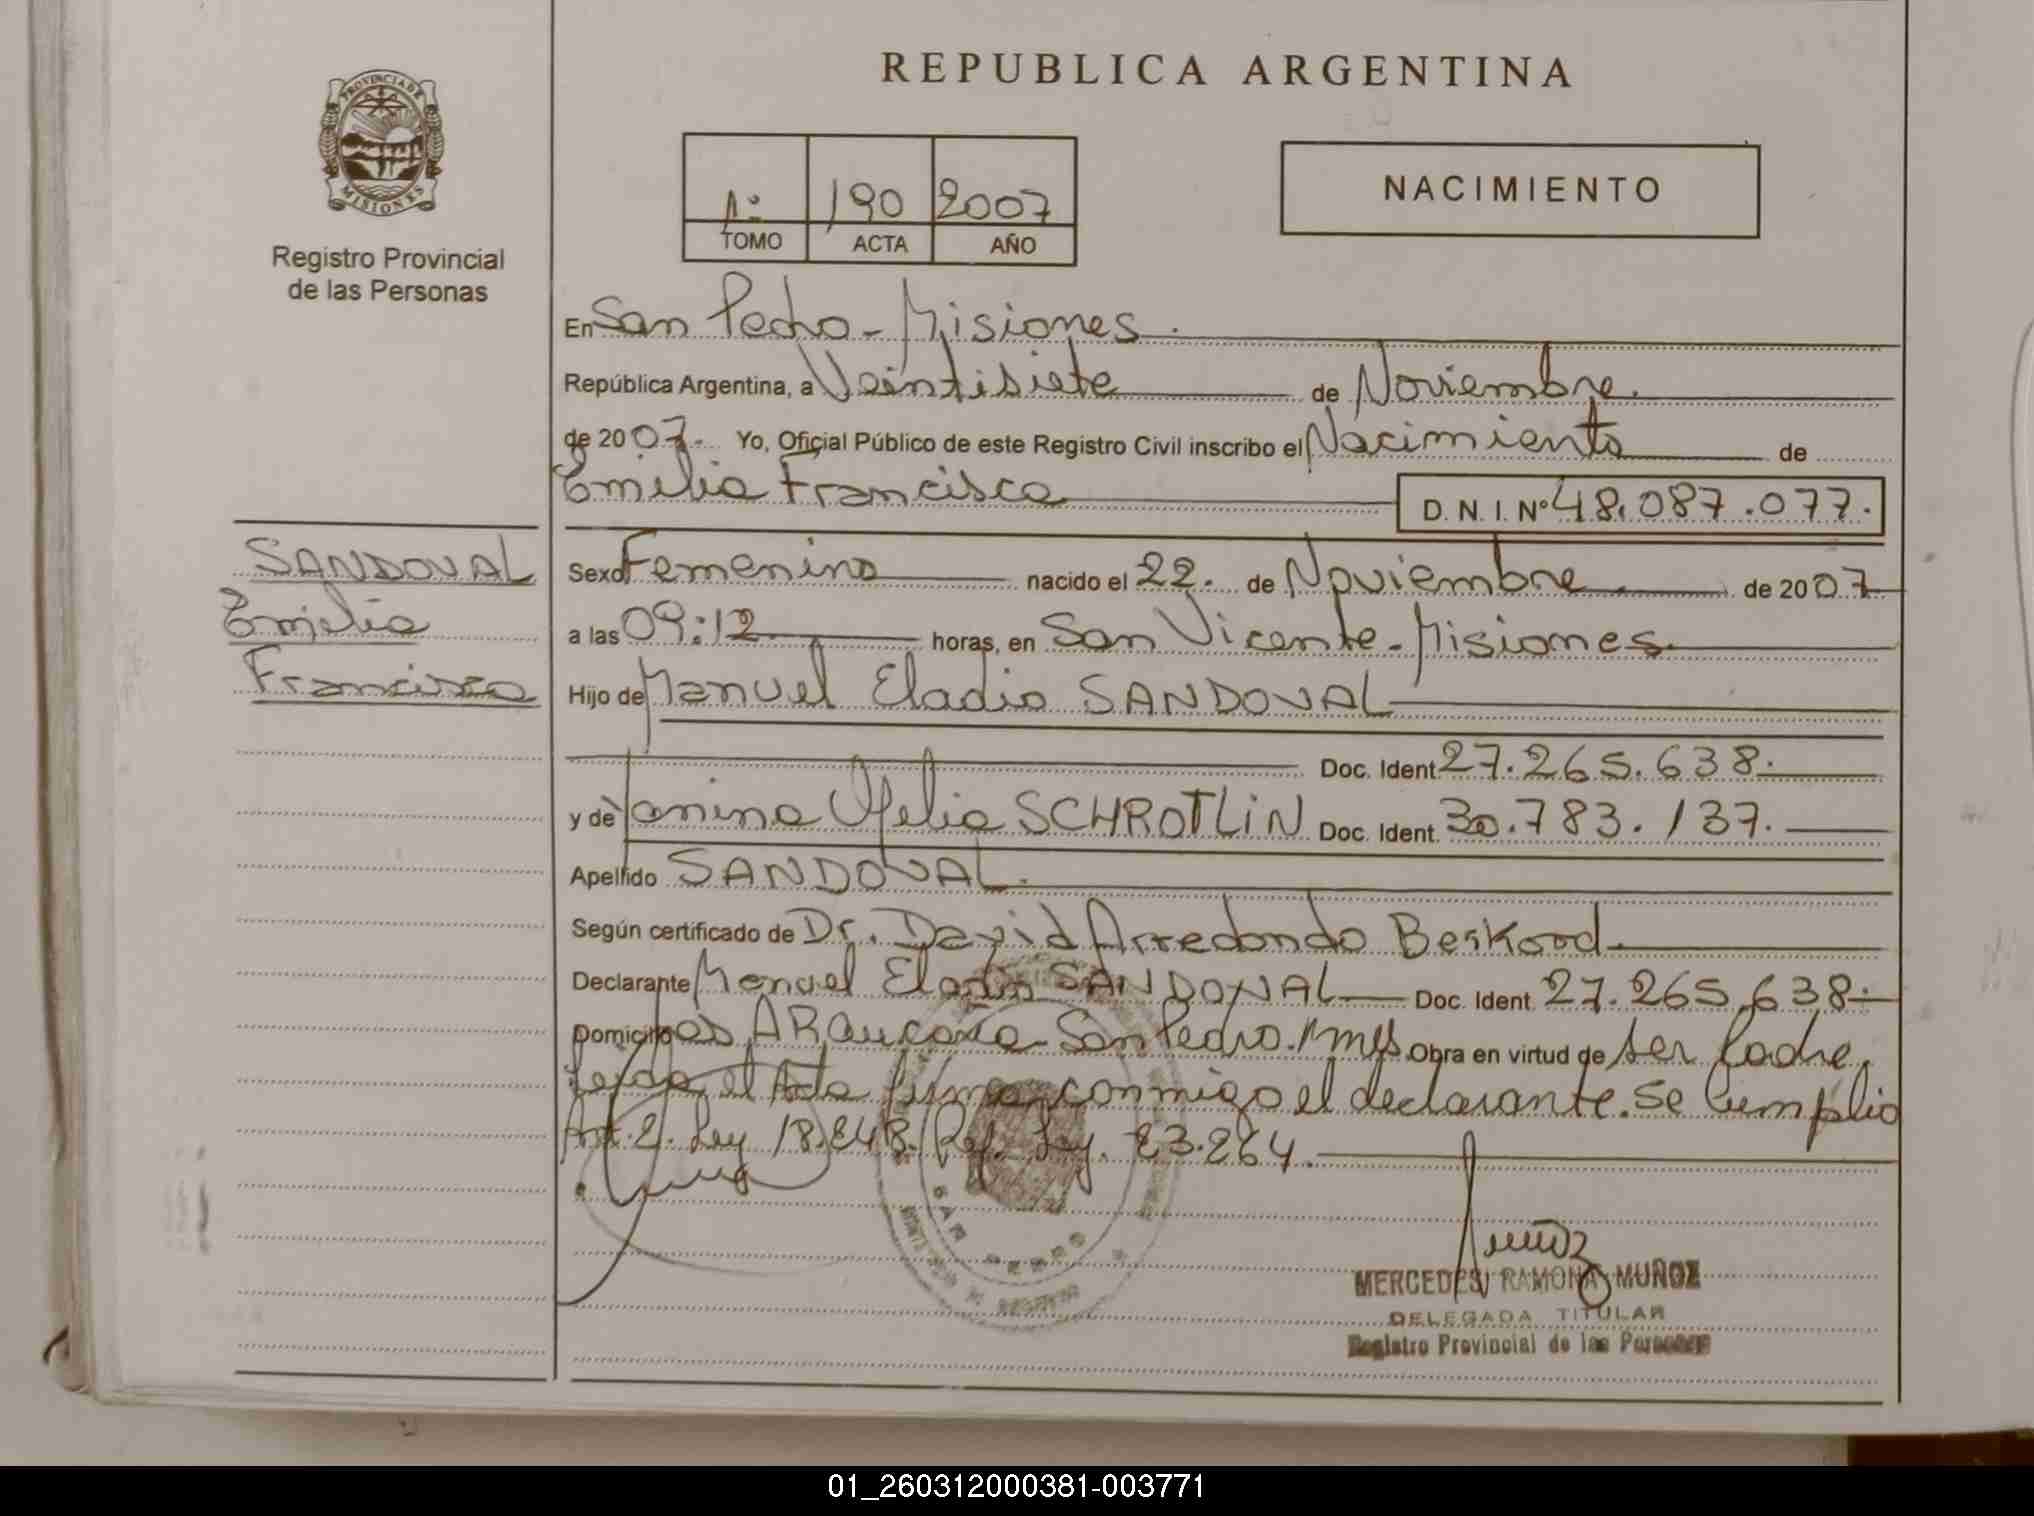 REPUBLICA ARGENTINA
PROVINCIA DE
MISIONES
Registro Provincial
de las Personas
1º 190 2007
TOMO ACTA AÑO
NACIMIENTO
En San Pedro - Misiones.
República Argentina, a Veintisiete de Noviembre.
de 2007. Yo, Oficial Público de este Registro Civil inscribo el Nacimiento de
Emilia Francisca
D. N. I. Nº 48.087.077.
SANDOVAL
Emilia
Francisca
Sexo Femenino nacido el 22. de Noviembre. de 2007
a las 09:12 horas, en San Vicente - Misiones.
Hijo de Manuel Eladio SANDOVAL
Doc. Ident 27.265.638.
y de Yanina Ofelia SCHROTLIN Doc. Ident. 30.783.137.
Apellido SANDOVAL.
Según certificado de Dr. David Arredondo Beskood.
Declarante Manuel Eladio SANDOVAL Doc. Ident. 27.265.638.
Domicilio San Pedro. Obra en virtud de ser Padre.
el Acta firma conmigo el declarante. Se Cumplio
Art. 2. Ley 18.248. Ref. Ley. 23.264.
SAN PEDRO
MERCEDES RAMONA MUÑOZ
DELEGADA TITULAR
Registro Provincial de las Personas
01_260312000381-003771